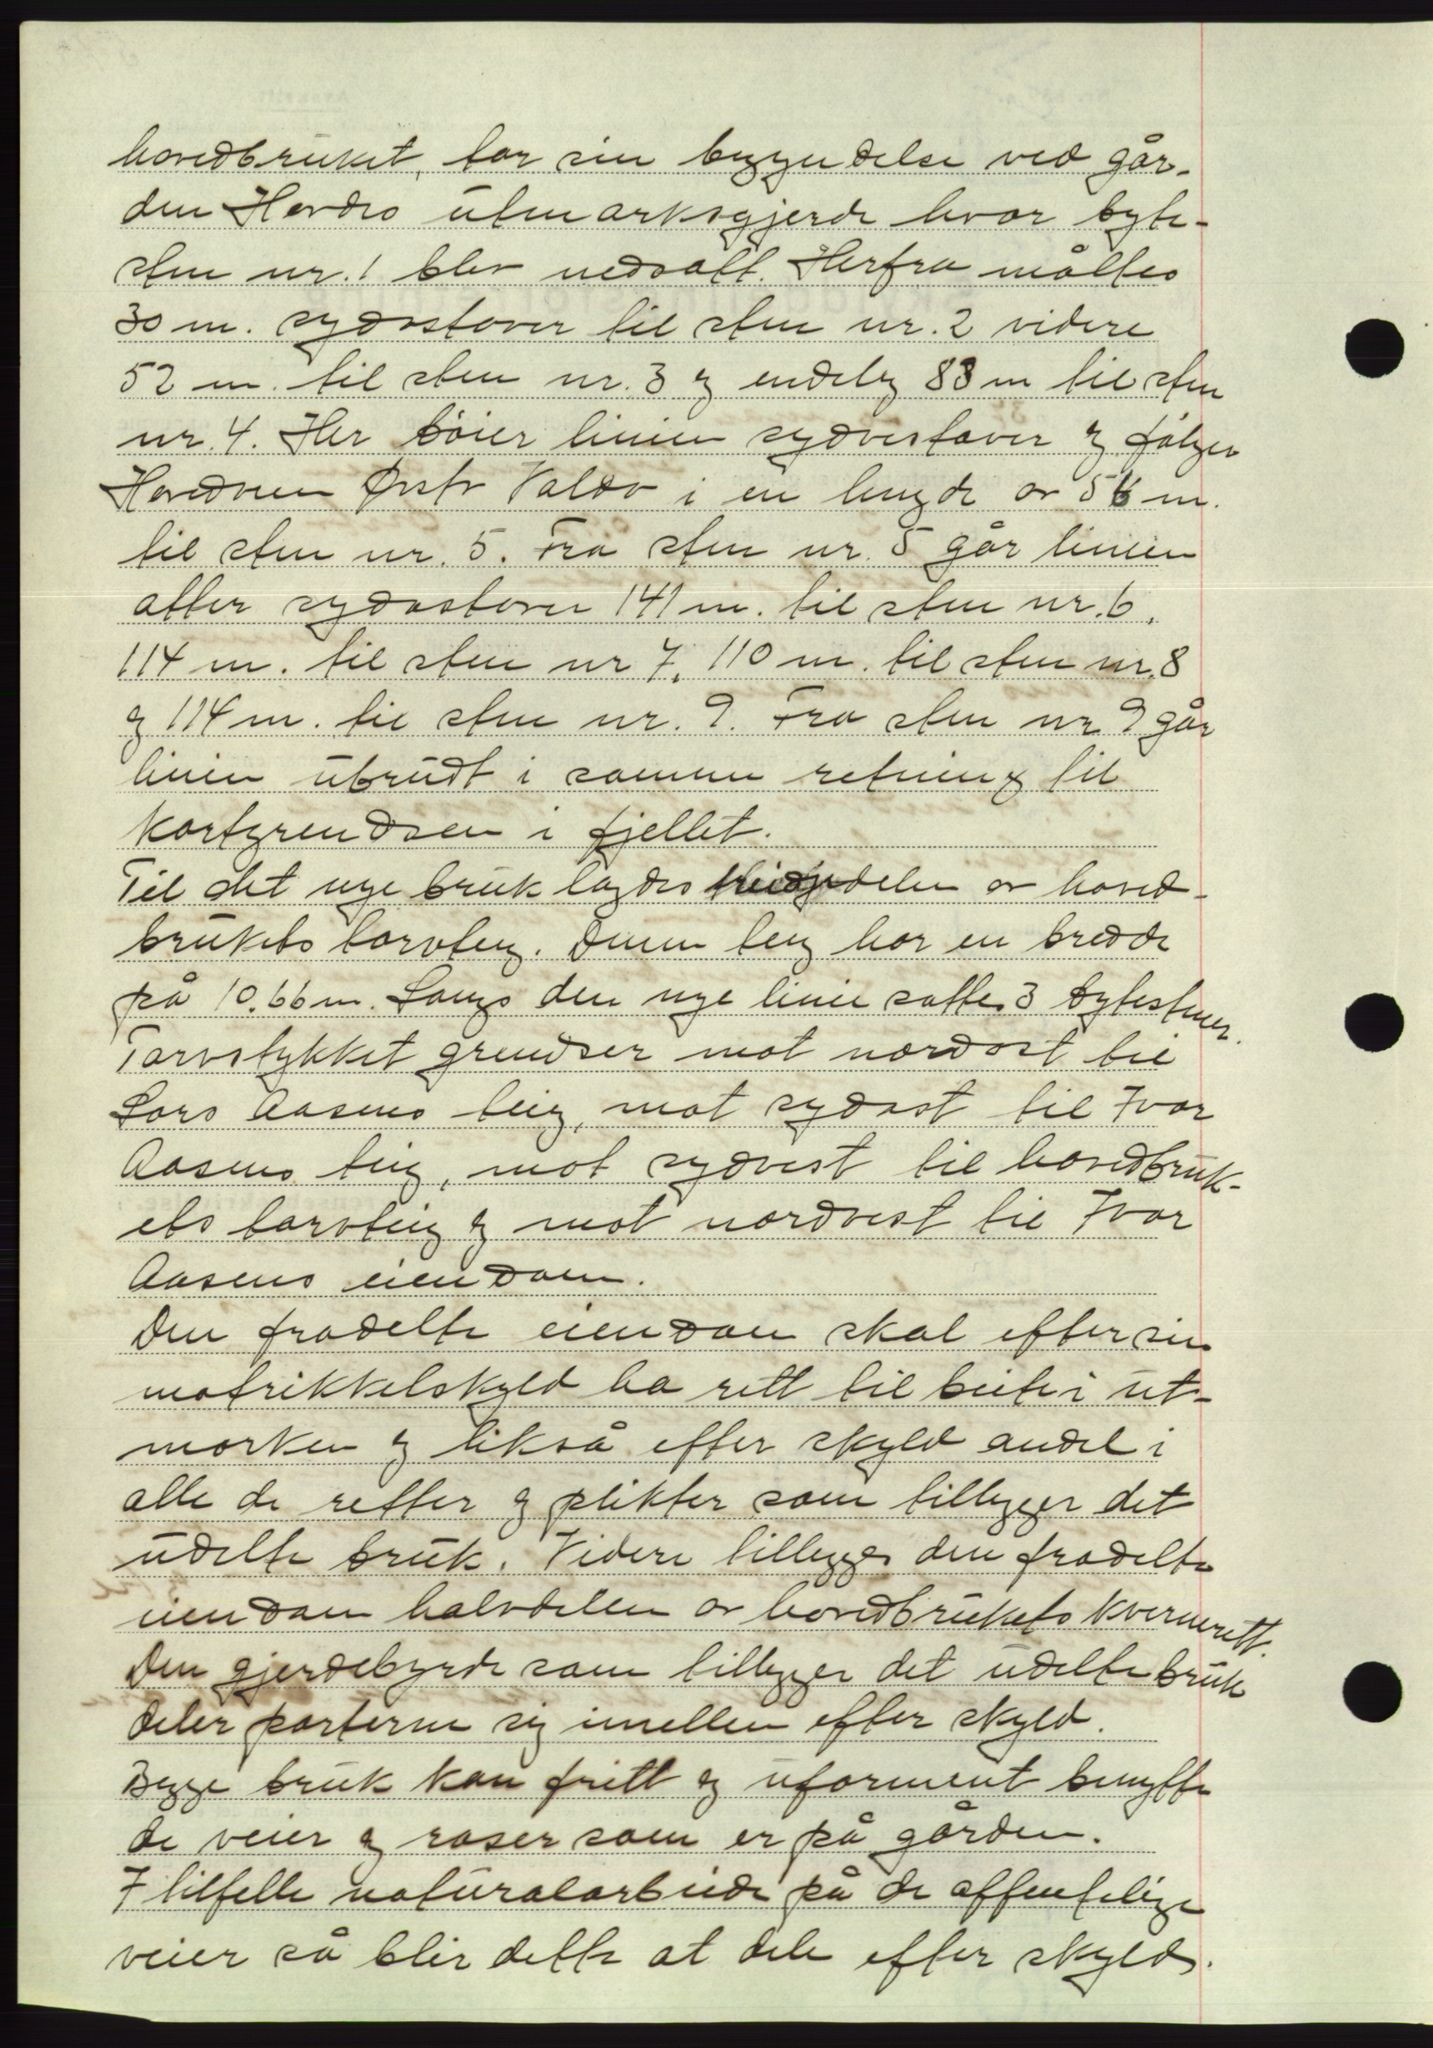 hovedbruket, tar sin begyndelse ved går-
den Havdes utmarksgjerde hvor byte-
sten nr. 1 blev nedsatt. Herfra måltes
30 m. sydostover til sten nr. 2 videre
52 m. til sten nr. 3 og endelig 83 m til sten
nr. 4. Her bøier linien sydvestover og følger
Hovedveien Ørsta Volda i en lengde av 56 m.
til sten nr. 5. Fra sten nr. 5 går linien
atter sydostover 141 m. til sten nr. 6,
114 m. til sten nr 7, 110 m. til sten nr. 8
og 114 m. til sten nr. 9. Fra sten nr 9 går
linien ubrudt i samme retning til
kortgrendsen i fjellet.
Til det nye bruk lagdes delen av hoved-
brukets torvteig. Denne teig har en bredde
på 10.66 m. Langs den nye linie sattes 3 bytestener.
Torvstykket grendser mot nordost til
Lars Aasens teig, mot sydost til Ivar
Aasens teig, mot sydvest til hovedbruk-
ets torvteig og mot nordvest til Ivar
Aasens eiendom.
Den fradelte eiendom skal efter sin
matrikkelskyld ha rett til beite i ut-
marken og likså efter skyld andel i
alle de retter og plikter som tilligger det
udelte bruk. Videre tillegges den fradelte
eiendom halvdelen av hovedbrukets kvernrett.
Den gjerdebyrde som tilligger det udelte bruk
deler parterne sig imellem efter skyld.
Begge bruk kan fritt og uforment benytte
de veier og raser som er på gården.
I tilfelle naturalarbeide på de offentelige
veier så blir dette at dele efter skyld.